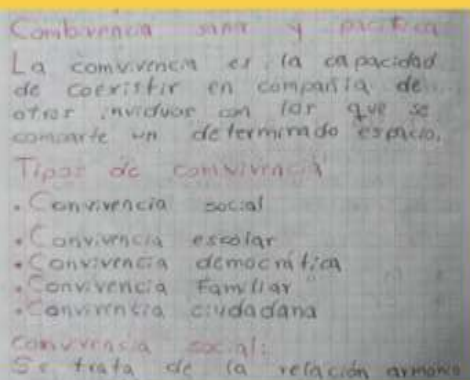 Combivencia sana y pacifica
La comvivencia es la capacidad
de coexistir en compañia de
otros inviduos con los que se
comparte un determinado espacio.
Tipos de comvivencia
• Convivencia social
• Convivencia escolar
• Convivencia democrática
• Convivencia Familiar
• Convivencia ciudadana
Convivencia social:
Se trata de la relación armonio